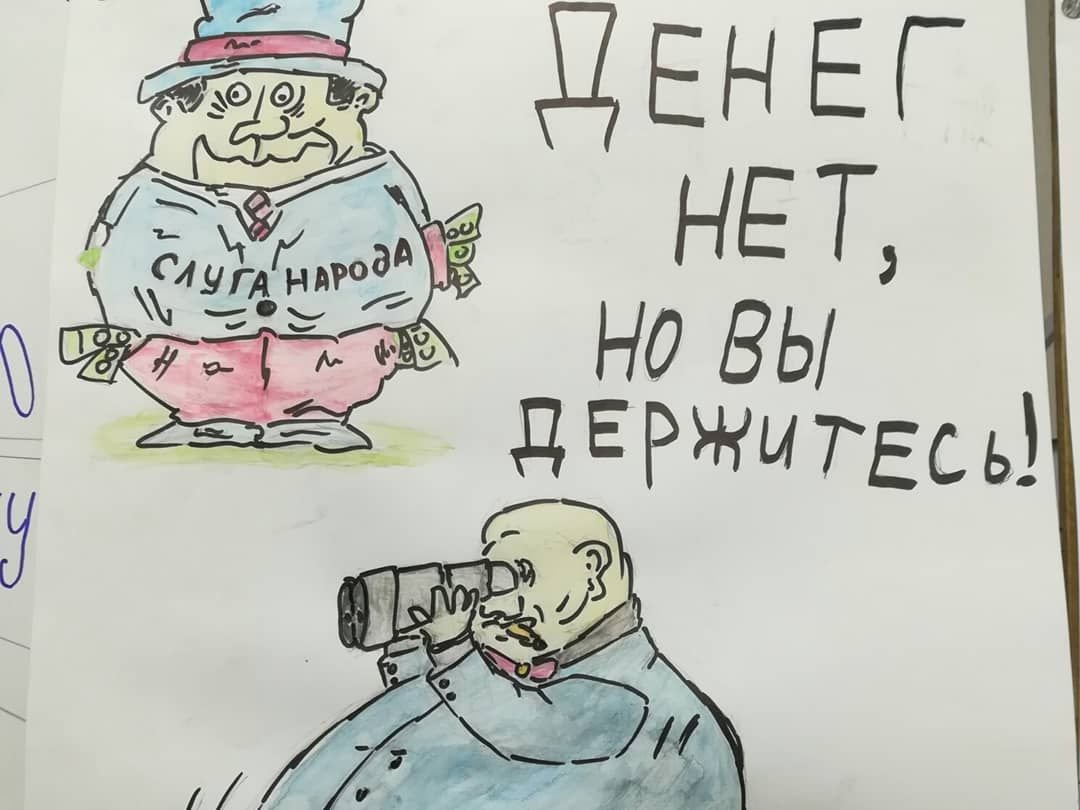 ДЕНЕГ
НЕТ,
НО ВЫ
ДЕРЖИТЕСЬ!
СЛУГА НАРОДА